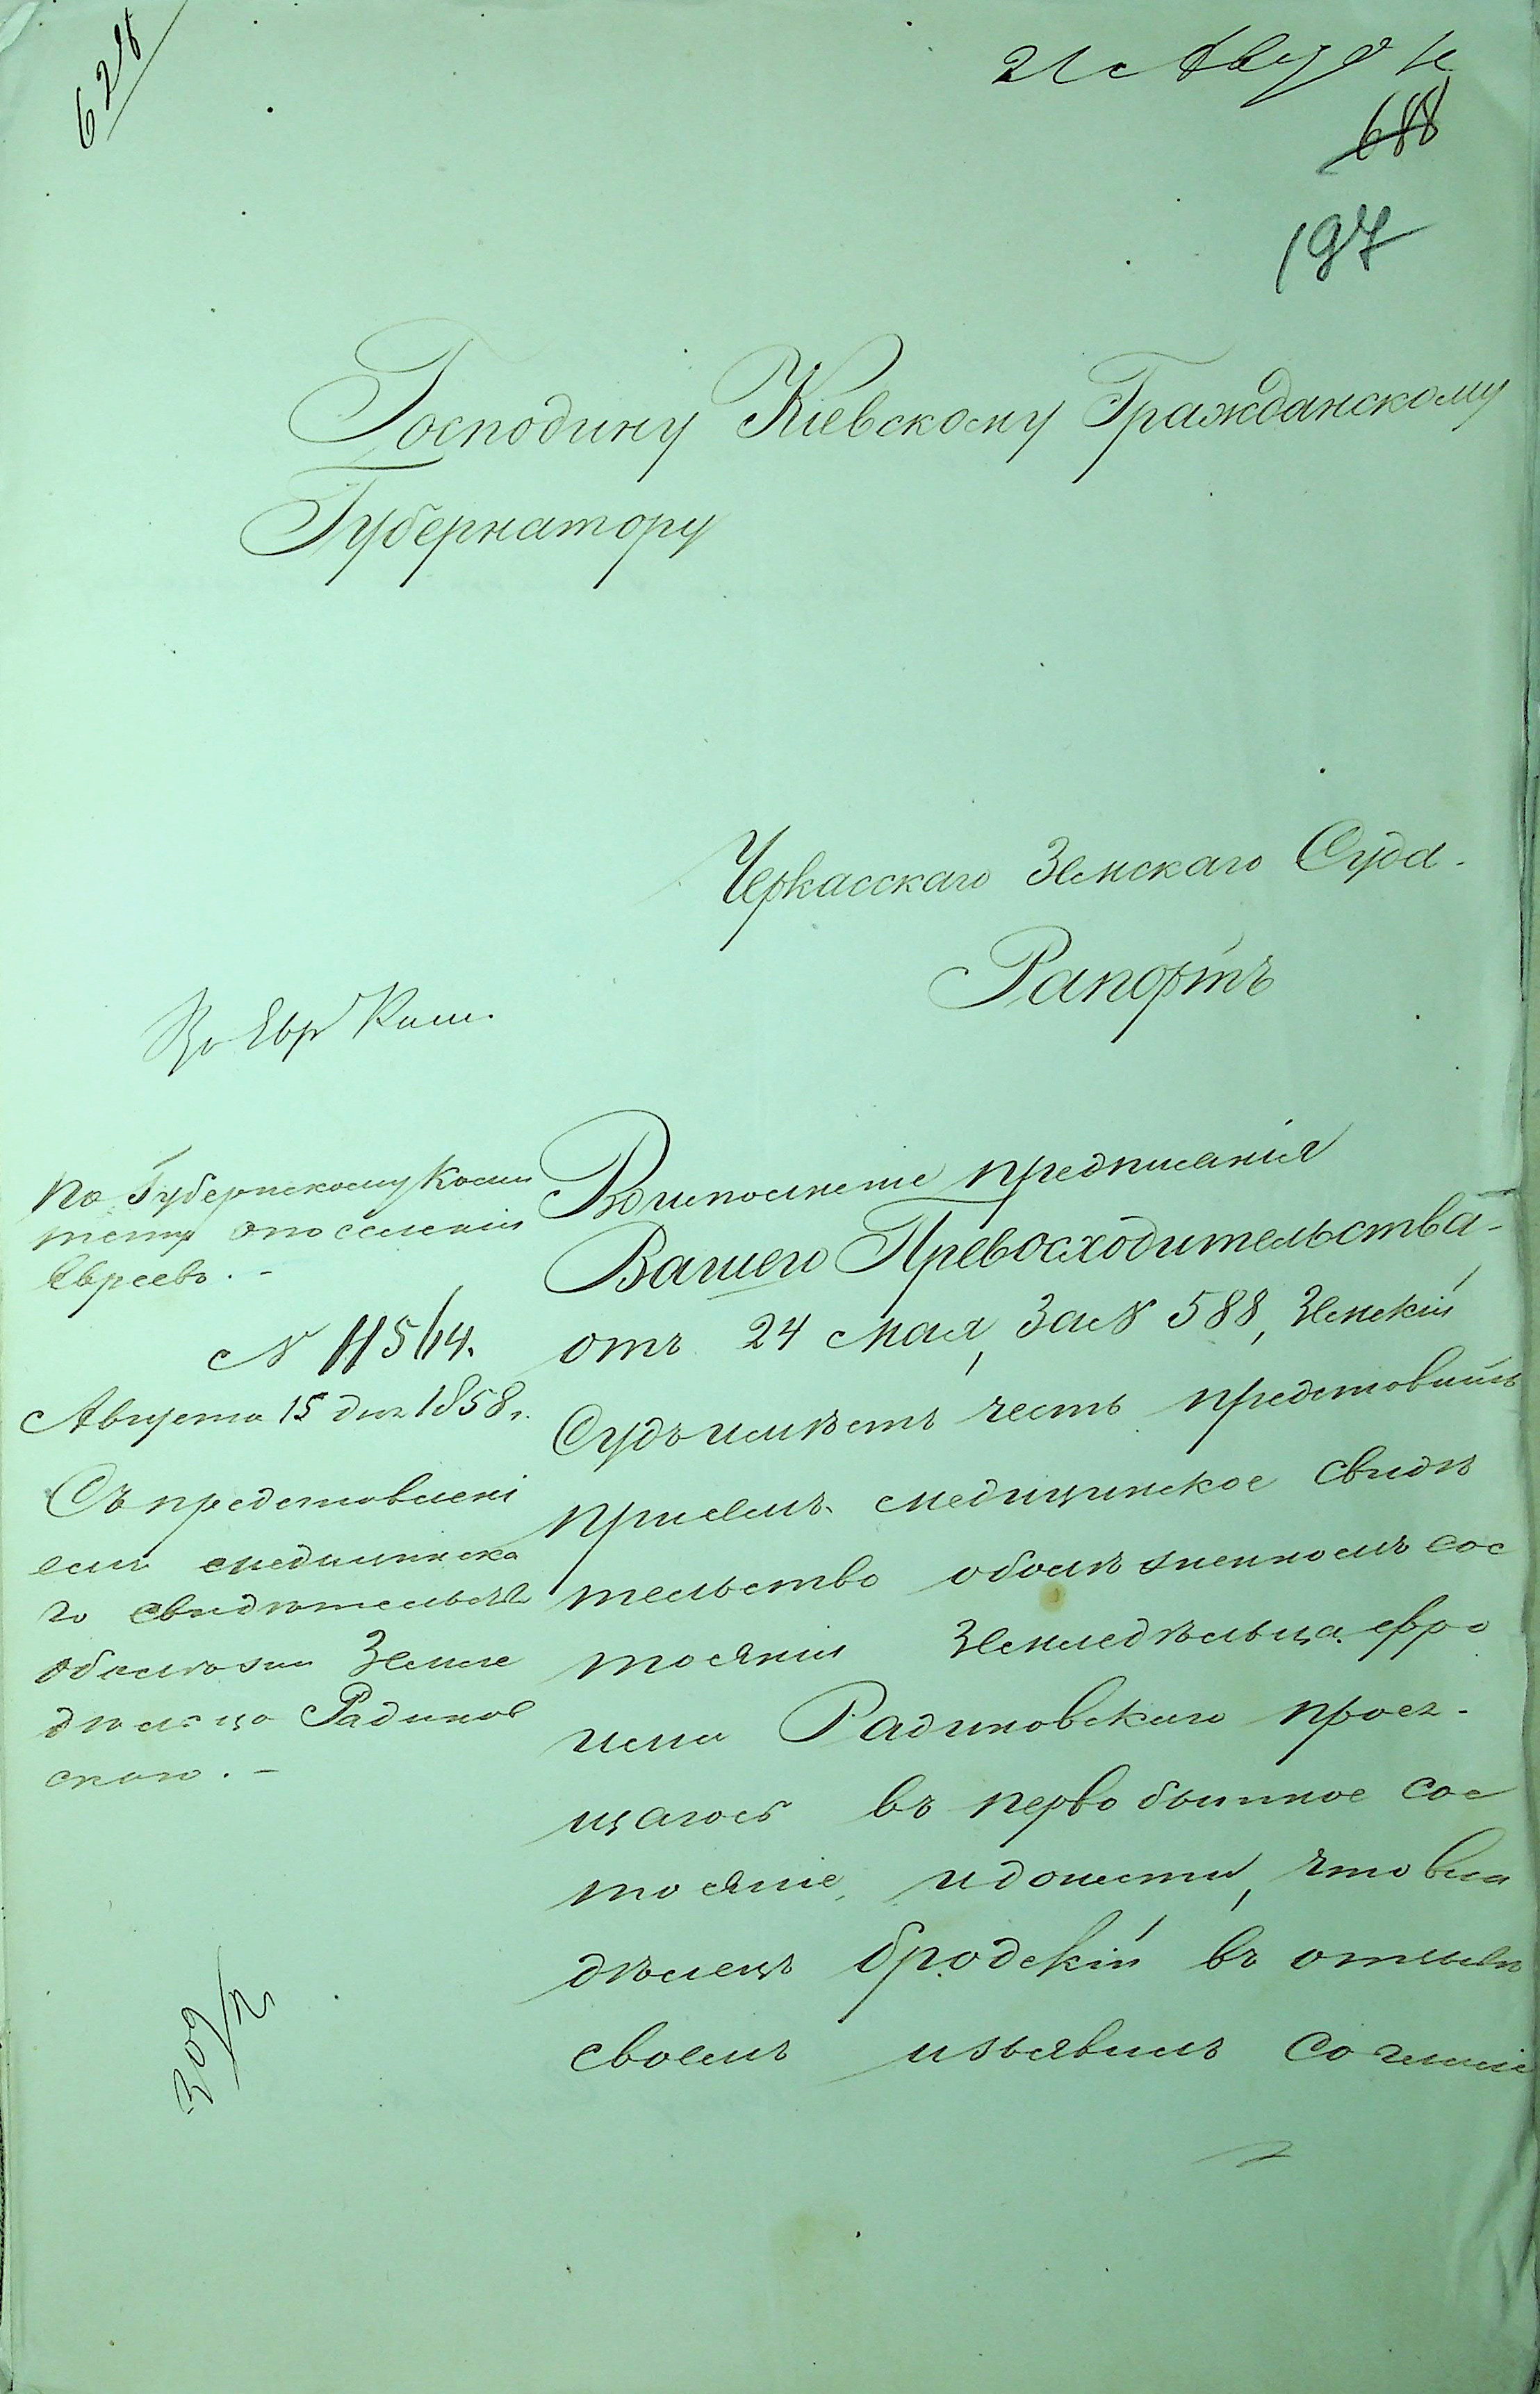 628
21 Авгу
688
197
Господину Кіевскому Гражданскому
Губернатору
Черкасскаго Земскаго Суда
Рапортъ
По Губернскому Коми
тету опоселеніи
Евреевъ. -
N 11564.
Августа 15 дня 1858 г.
Съ представлені
емъ медицинска
го свидѣтельства
оболѣзни Земле
дѣльца Радинов
скаго. -
Воисполненіе предписанія
Вашего Превосходительства
отъ 24 мая, за N 588, Земскій
Судъ имѣетъ честь представить
присемъ медицинское свидѣ
тельство оболѣзненномъ сос
тояніи Земледѣльца Фро
има Радиновскаго прося-
щагося въ первобытное сос
тояніе, идонести, что вла
дѣлецъ Бродскій въ отзывѣ
своемъ изъявилъ согласіе
309/2